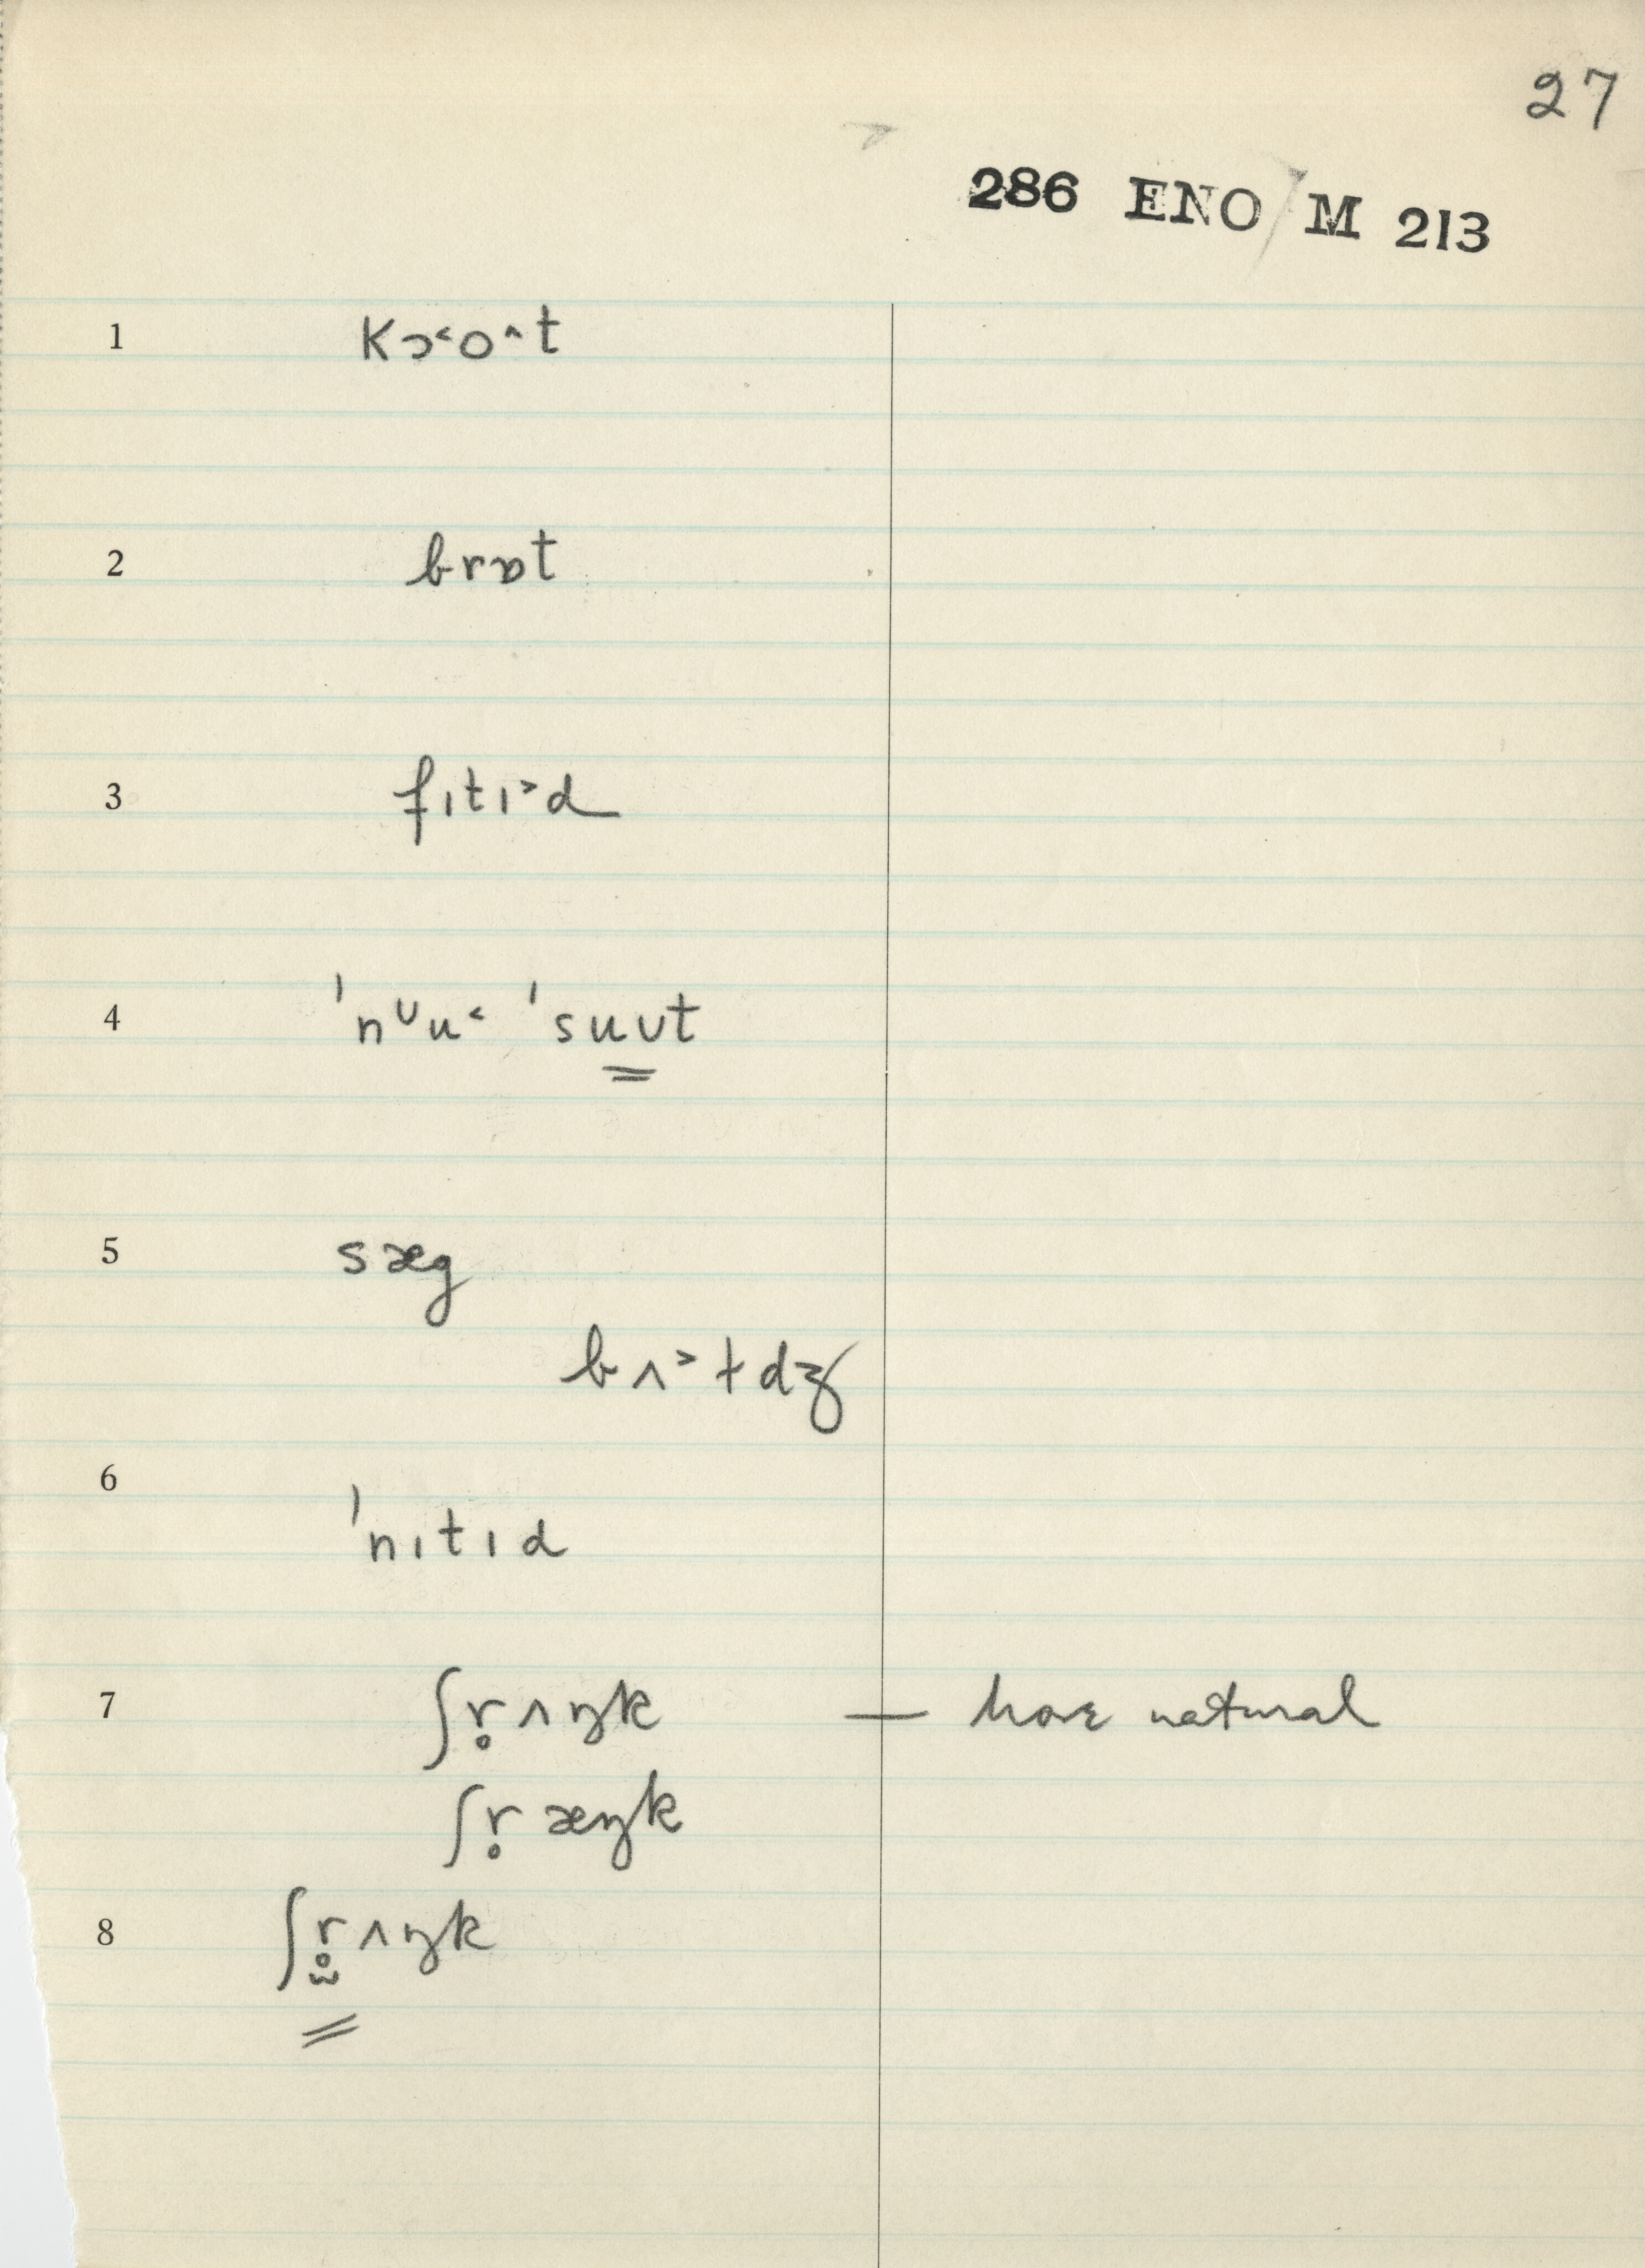 27
286 ENO M 213
1 kɔ˂o^t
2 brɒt
3 fɪtɪ˃d
4 ˈnᶸu˂ ˈsuʊt
5 sæg
bʌ˃tdʒ
6 ˈnɪtɪd
7 ʃr̥ʌŋk — more natural
ʃr̥æŋk
8 ʃr̥̫ʌŋk